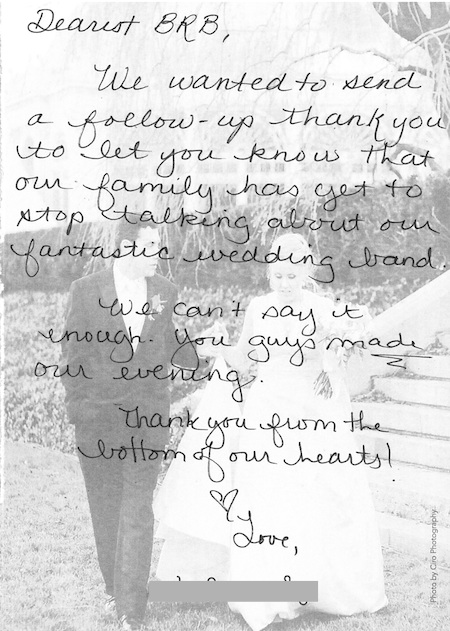 Dearest BRB,
We wanted to send
a follow-up thank you
to let you know that
our family has yet to
stop talking about our
fantastic wedding band.
We can't say it
enough. You guys made
our evening.
Thank you from the
bottom of our hearts!
Love,
Photo by Ciro Photography